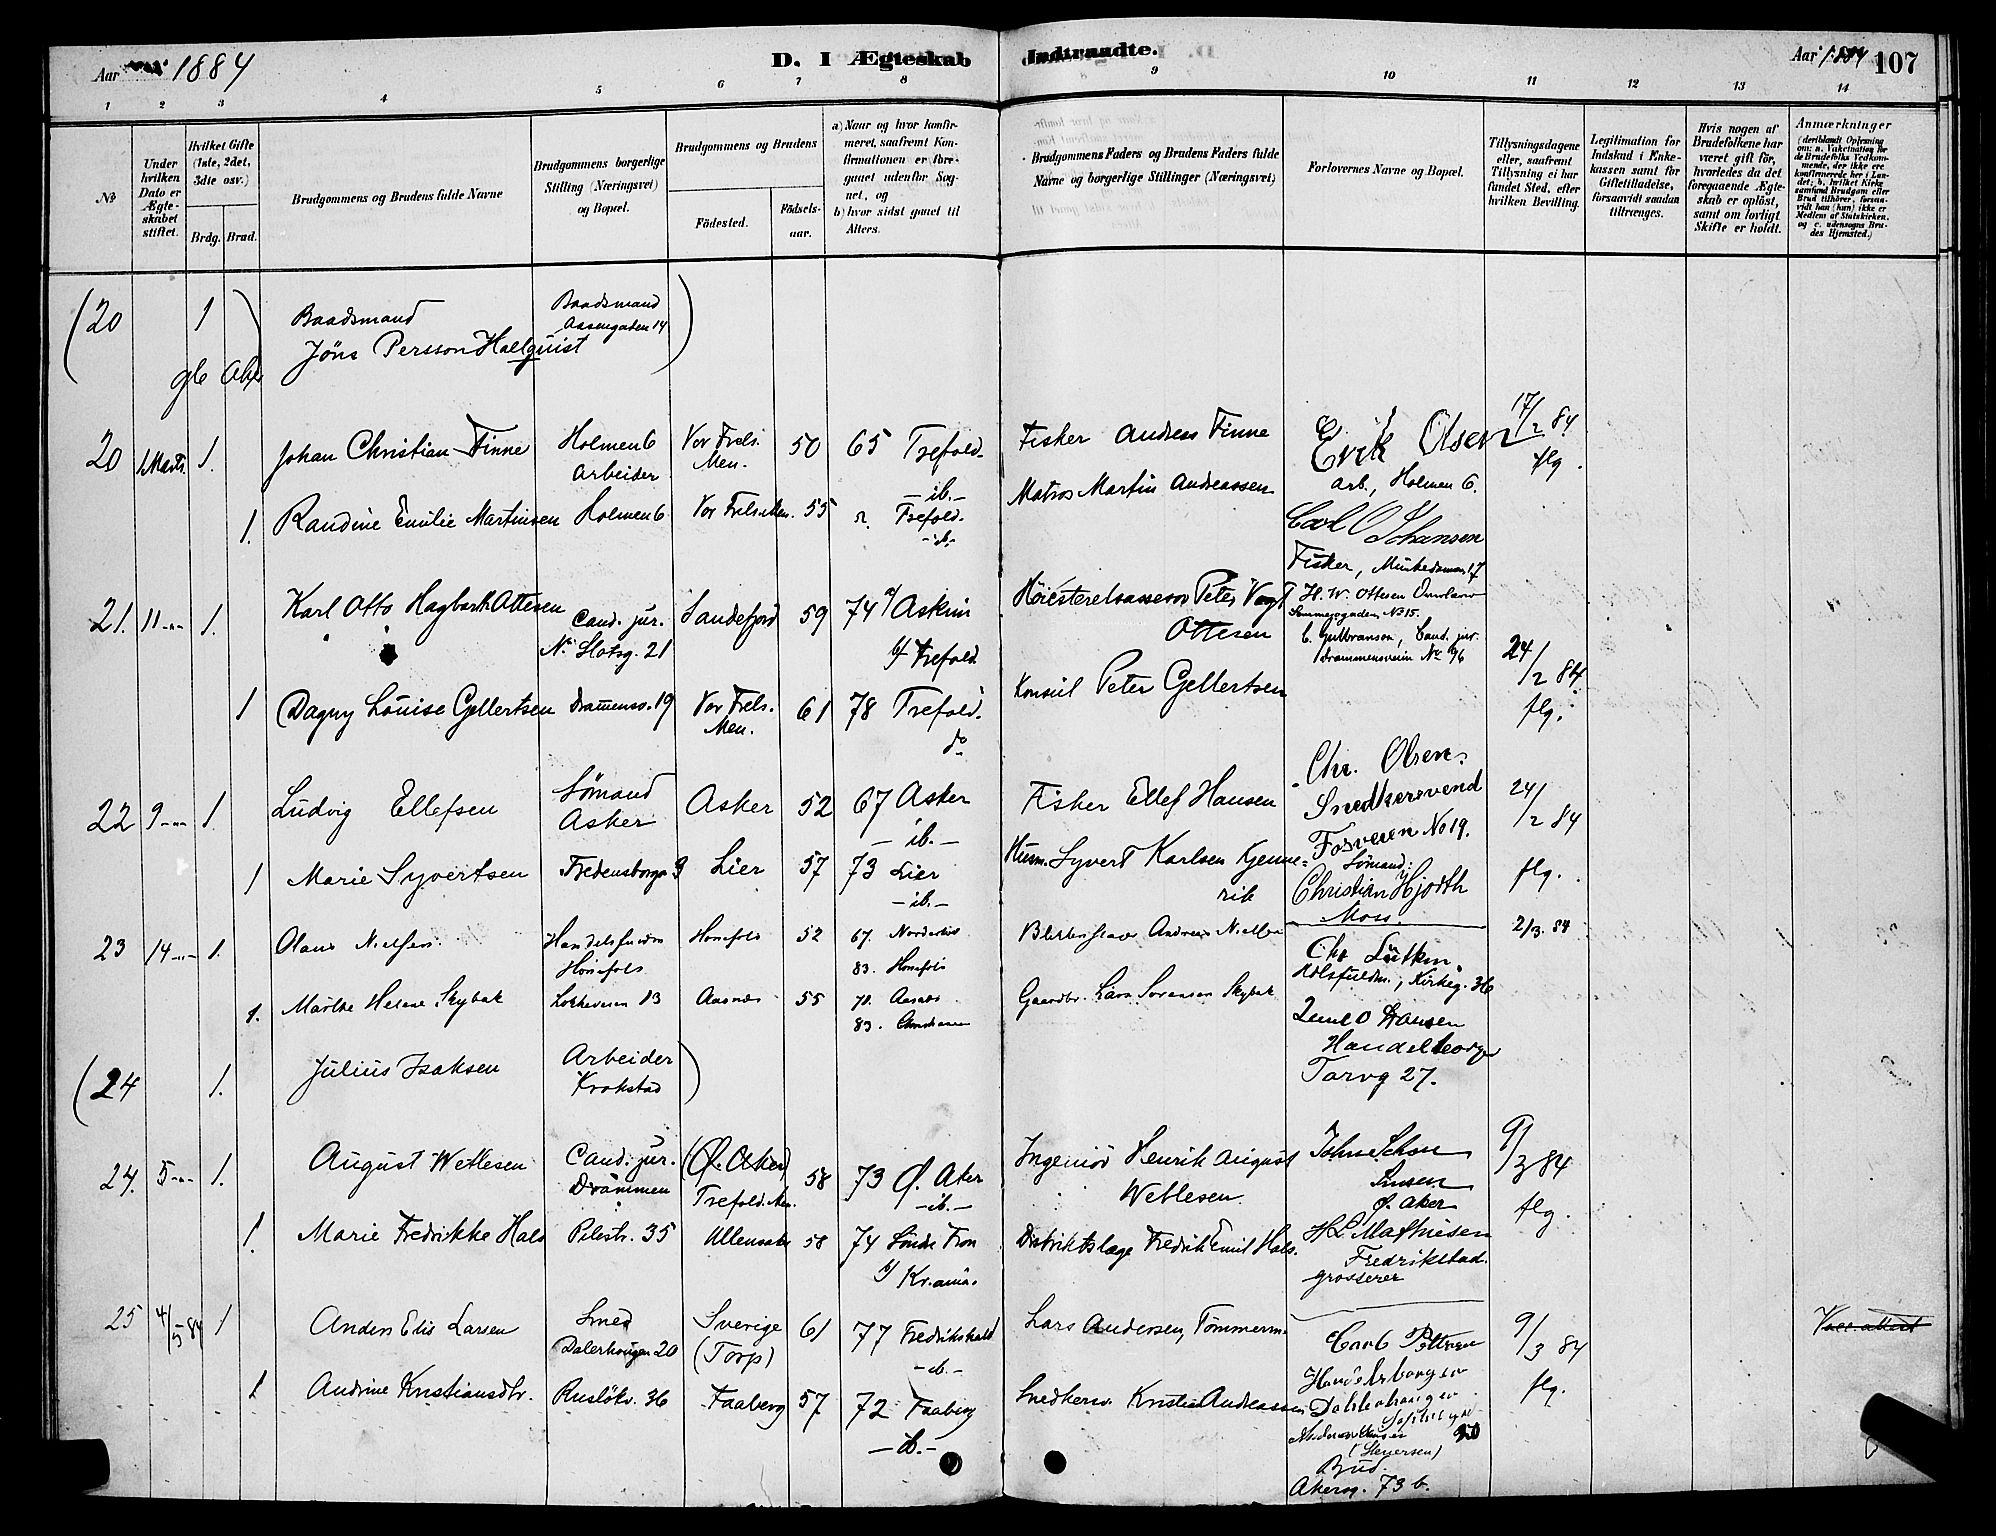 Aar 1884
D. I Ægteskab Indtraadte.
Aar 1884 107
1 2 3 4 5 6 7 8 9 10 11 12 13 14
№
Under hvilken Dato er Ægteskabet stiftet.
Hvilket Gifte (1ste, 2det, 3die osv.)
Brdg. Brud.
Brudgommens og Brudens fulde Navne
Brudgommens borgerlige Stilling (Næringsvei) og Bopæl.
Brudgommens og Brudens
Födested.
Födselsaar.
a) Naar og hvor konfirmeret, saafremt Konfirmationen er foregaaet udenfor Sognet, og
b) hvor sidst gaaet til Alters.
Brudgommens Faders og Brudens Faders fulde Navne og borgerlige Stillinger (Næringsvei)
Forlovernes Navne og Bopæl.
Tillysningsdagene eller, saafremt Tillysning ei har fundet Sted, efter hvilken Bevilling.
Legitimation for Indskud i Enkekassen samt for Giftetilladelse, forsaavidt saadan tiltrænges.
Hvis nogen af Brudefolkene har været gift för, hvorledes da det foregaaende Ægteskab er oplöst, samt om lovligt Skifte er holdt.
Anmærkninger
(deriblandt Oplysning om: a. Vakcination for de Brudefolks Vedkommende, der ikke ere konfirmerede her i Landet; b. hvilket Kirkesamfund Brudgom eller Brud tilhörer, forsaavidt han (hun) ikke er Medlem af Statskirken, og c. udensogns Brudes Hjemsted.)
(20 1 Baadsmand Baadsmand
Aasengaden 14)
Jöns Persson Hallquist
20 1 Marts 1. Johan Christian Finne Holmen 6 Vor Frels. 50 65 Trefold. Fisker Andreas Finne Erik Olsen 17/2 84
Arbeider Men. - ib. - arb., Holmen 6. flg.
1. Randine Emilie Martinsen Holmen 6 Vor Frels. Men. 55 Trefold. Matros Martin Andreassen Carl O Johansen
- ib. - Fisker, Munkedamsv. 17
21. 11 -"- 1. Karl Otto Hagbarth Ottesen Cand. jur. Sandefjord 59 74 a/ Askim Höiesteretsassessor Peter Vogt
N. Slotsg. 21 b/ Trefold. Ottesen
C. Gulbranson, Cand. jur.
Drammensveien No 96 24/2 84.
1 Dagny Louise Gellertsen Drammensv. 19 Vor Frels. 61 78 Trefold. Konsul Peter Gellertsen flg.
Men. do
22 9 -"- 1. Ludvig Ellefsen Sömand Asker 52 67 Asker Fisker Ellef Hansen Chr. Olsen. 24/2 84
Asker - ib. - Snedkersvend
Fosveien No 19.
1 Marie Syvertsen Fredensborgv. 9 Lier 57 73 Lier Husm. Syvert Karlsen Kjenne= Sömand: flg.
- ib. - rik Christian Hjorth
Moss.
23 14 -"- 1. Olaus Nielsen Hönefos 52 67. Norderhov Andreas Nielsen 2/3. 84
Hönefos 83. Hönefos Chr Lütken
Kirkeg. 36
1. Marthe Helene Skybak Aasnes 55 70. Aasnes Gaardbr. Lars Sorensen Skybak
83. O Hansen
Handelborger
Torvg 27.
(24 1. Julius Isaksen Arbeider
Krokstad)
24. 5 -"- 1. August Wetlesen Cand. jur. (Ø. Aker) 58 73 Ø. Aker Ingeniör Henrik August 9/3 84
Drammen Trefold. Men. - ib. - Wetlesen. Ø. Aker flg.
1. Marie Fredrikke Hals Pilestr. 35 Ullensaker 58 74 Söndre Fron Distriktslæge Fredrik Emil Hals. H. L. Mathiesen
b/ Kr.ania. Fredrikstad.
grosserer
25 4/5 84 1 Anders Elis Larsen Smed Sverige 61 77 Fredrikshald Lars Andersen, Tömmerm. Carl Pettersen 9/3 84 Vacc. attest
Dalerhougen 20 (Torp) - ib. - Handelsborger flg.
1 Andrine Kristiansdtr. Ruslökv. 36 Faaberg 57 72 Faaberg Snedkersv. Kristian Andreassen
- ib. - (Steversen)
Bud.
Akersg. 73 b.